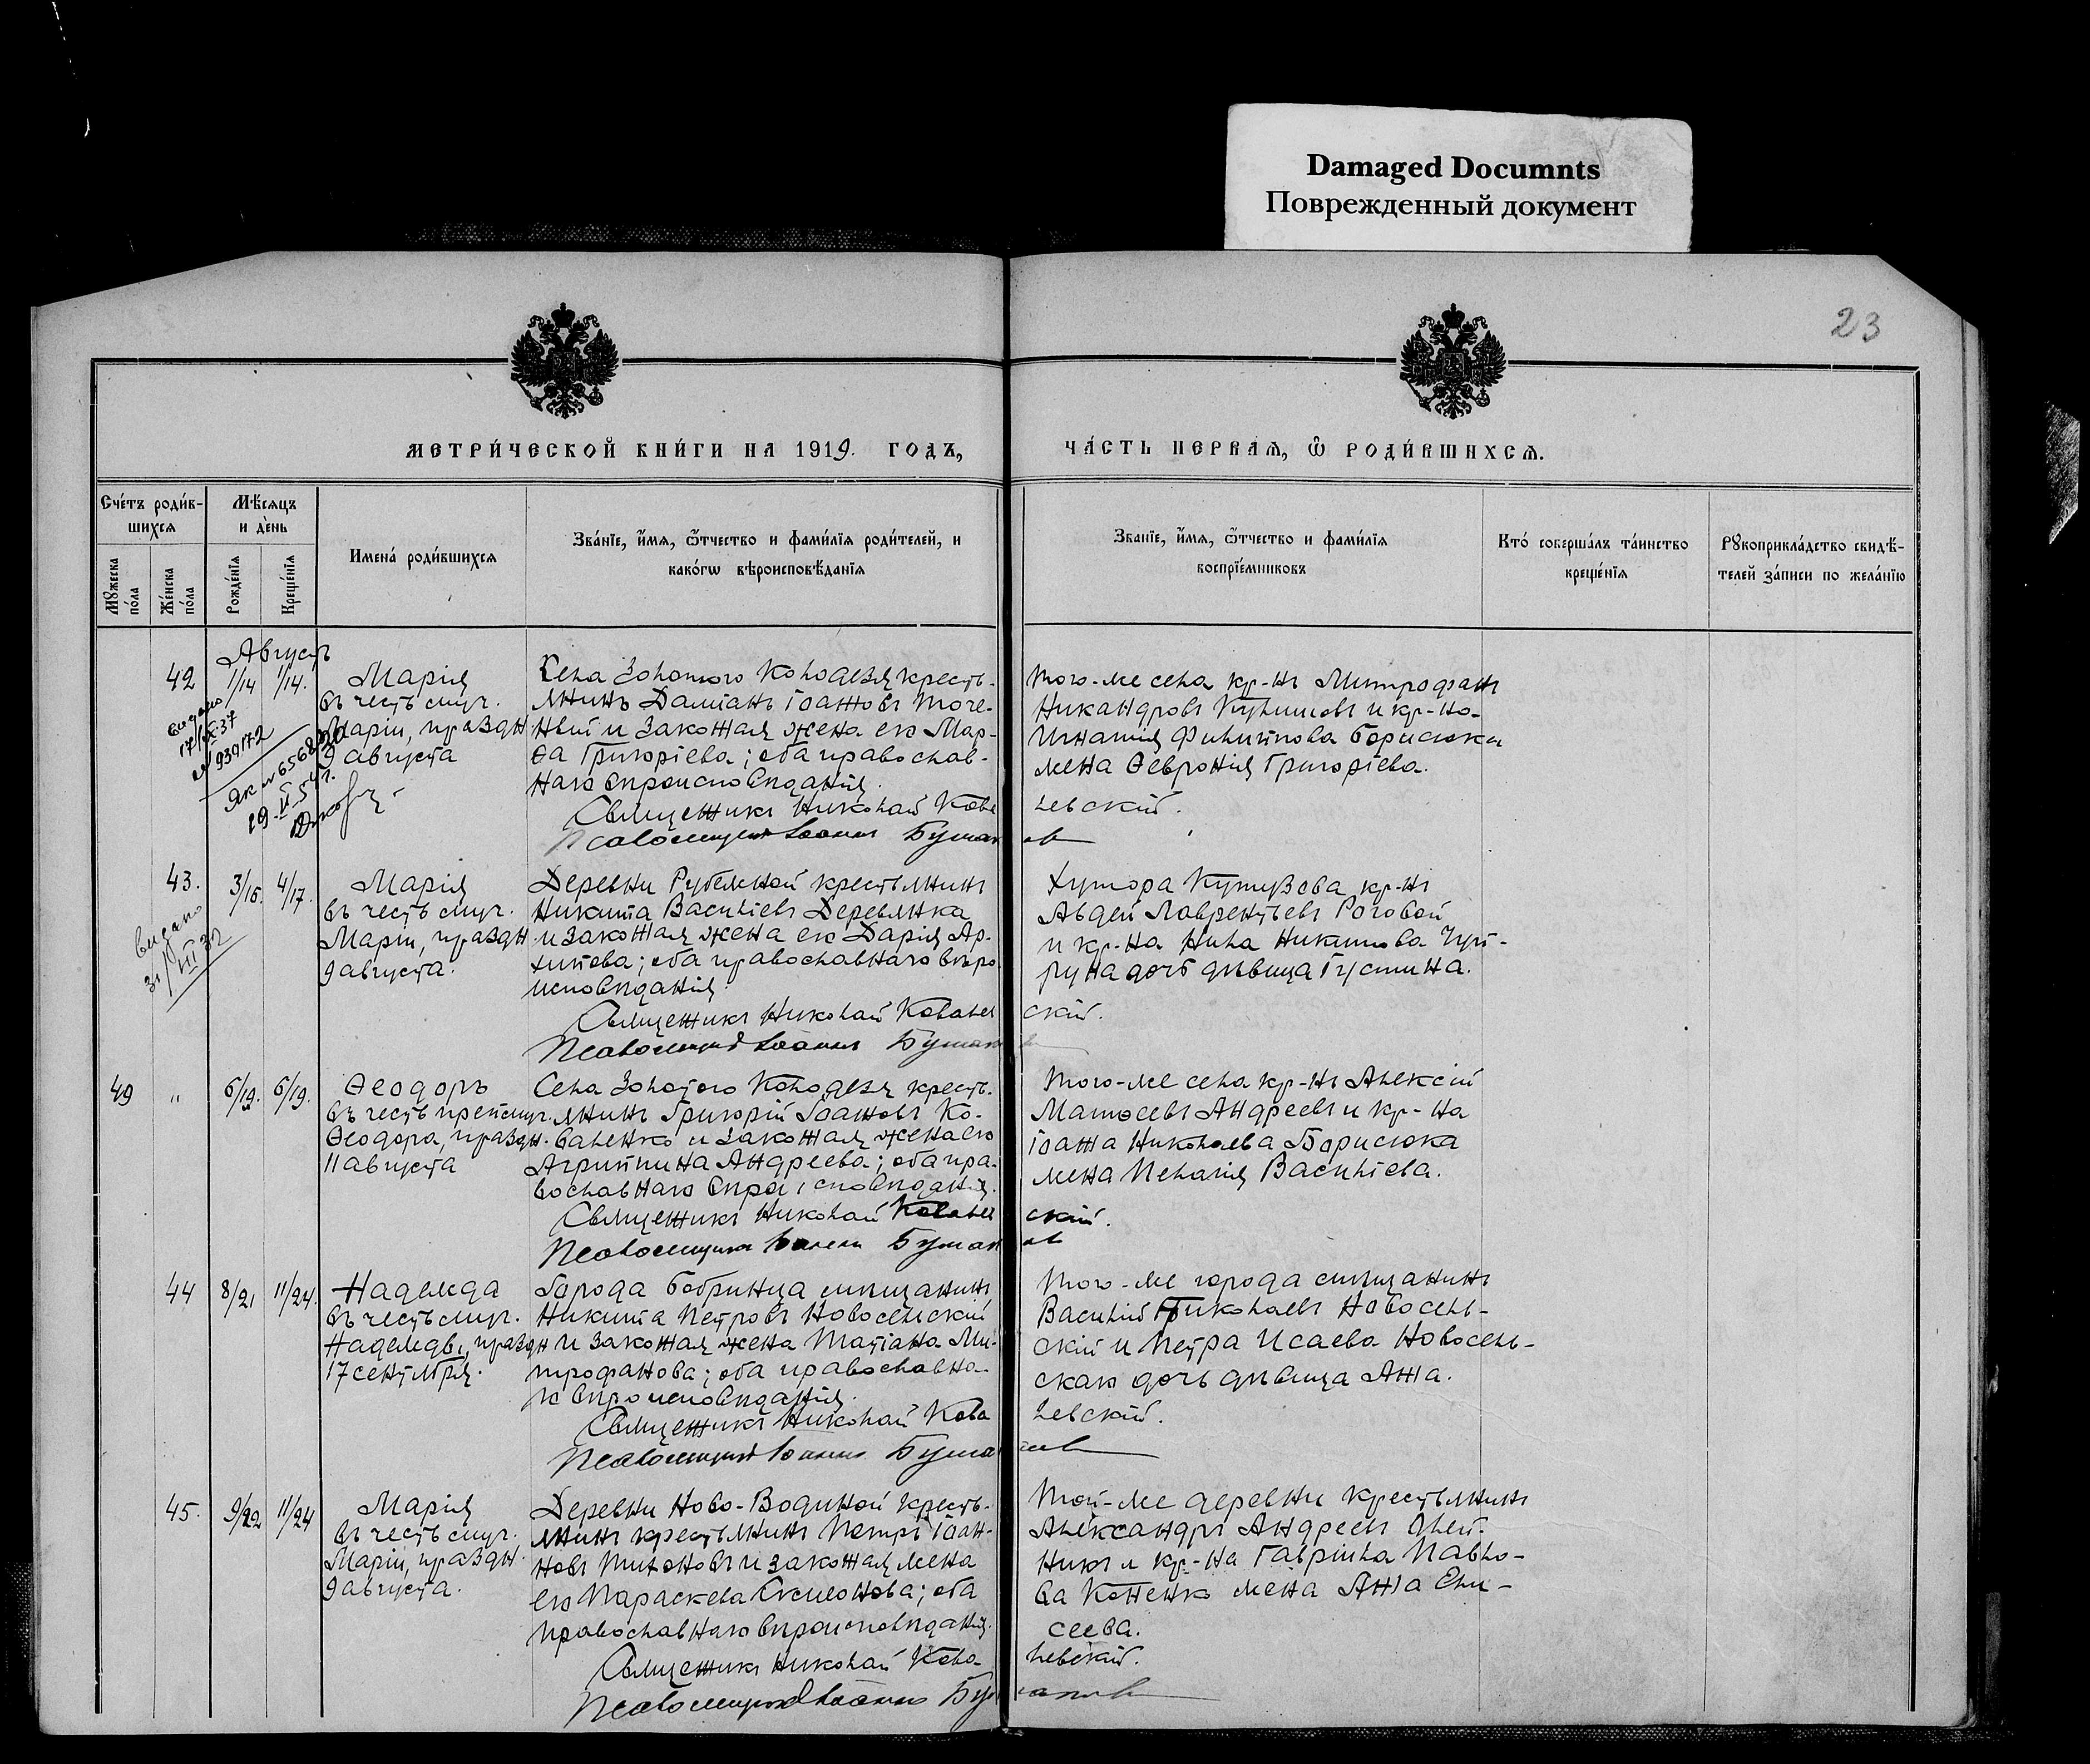 Damaged Documnts
Поврежденный документ
23
МЕТРИ́ЧЕСКОЙ КНИ́ГИ НА 1919. ГОДЪ,
ЧА́СТЬ ПЕРВАЯ, Ѿ РОДИ́ВШИХСѦ.
Сче́тъ роди́в-
шихсѧ
Мѣ́сяцъ
и де́нь
Мꙋ́жеска по́ла
Же́нска по́ла
Рожде́нїѧ
Креще́нїѧ
Имена́ роди́вшихсѧ
Зва́нїе, и́мѧ, ѻ҆́тчество и фами́лїѧ роди́телей, и
како́гѡ вѣроисповѣ́данїѧ
Зва́нїе, и́мѧ, ѻ҆́тчество и фами́лїѧ
воспрїе́мниковъ
Кто́ соверша́лъ та́инство
креще́нїѧ
Рꙋкоприкла́дство свидѣ́-
телей за́писи по жела́нїю
Августъ
42 1/14 1/14.
Марія
въ честь муч.
Маріи, праздн
9 августа
видано
17/IX-37
№ 939172
19-II-51 г.
Села Золотого Колодезя кресть-
янинъ Даміанъ Іоанновъ Точе-
ный и законная жена его Мар-
ѳа Григоріева; оба православ-
наго вѣроисповѣданія.
Священникъ Николай Кова
левский.
Псаломщикъ Іоаннъ Бушак
ов
того-же села кр-нъ Митрофанъ
Никандровъ и кр-на-
Игнатія Филиппова Борисюка
жена Ѳевронія Григоріева.
43. 3/16. 4/17.
Марія
въ честь муч.
Маріи, праздн.
9 августа.
видано
31/VIII 32
Деревни Рубежной крестьянинъ
Никита Васильевъ Деревянка
и законная жена его Дарія Ар-
хипова; оба православнаго вѣро
исповѣданія.
Священникъ Николай Ковалев
скій.
Псаломщикъ Іоаннъ Бушак
Хутора Кутузова кр-нъ
Авдей Лаврентьевъ Роговой
и кр-на Нила Никитова Чуп-
руна дочь дѣвица Густина.
49 " 6/19. 6/19.
Ѳеодоръ
въ честь преп муч.
Ѳеодора, праздн.
11 августа
Села Золотого Колодезя кресть-
янинъ Григорій Іоанновъ Ко-
валенко и законная жена его
Агриппина Андреева; оба пра-
вославнаго вѣроисповѣданія.
Священникъ Николай Ковалев
скій.
Псаломщикъ Іоаннъ Бушак
ов
того-же села кр-нъ Алексій
Матѳеевъ Андреевъ и кр-на
Іоанна Николаева Борисюка
жена Пелагія Васильева.
44 8/21 11/24.
Надежда
въ честь муч.
Надежды, праздн
17 сентября.
Города Бобринца мѣщанинъ
Никита Петровъ Новосельскій
и законная жена Татіана Ми-
трофанова; оба православна-
го вѣроисповѣданія.
Священникъ Николай Кова
левскій.
Псаломщикъ Іоаннъ Буша
ков
того-же города мѣщанинъ
Василій Николаевъ Новосель-
скій и Петра Исаева Новосель-
скаго дочь дѣвица Анна.
45. 9/22 11/24
Марія
въ честь муч.
Маріи, праздн.
9 августа.
Деревни Ново-Водяной кресть-
янинъ крестьянинъ Петръ Іоан-
новъ Тихоновъ и законная жена
его Параскева Симонова; оба
православнаго вѣроисповѣданія.
Священникъ Николай Кова-
левскій.
Псаломщикъ Іоаннъ Буш
аков
той-же деревни крестьянинъ
Александръ Андреевъ Олей-
никъ и кр-на Гавріила Павло-
ва Коненко жена Анна Ели-
сеева.